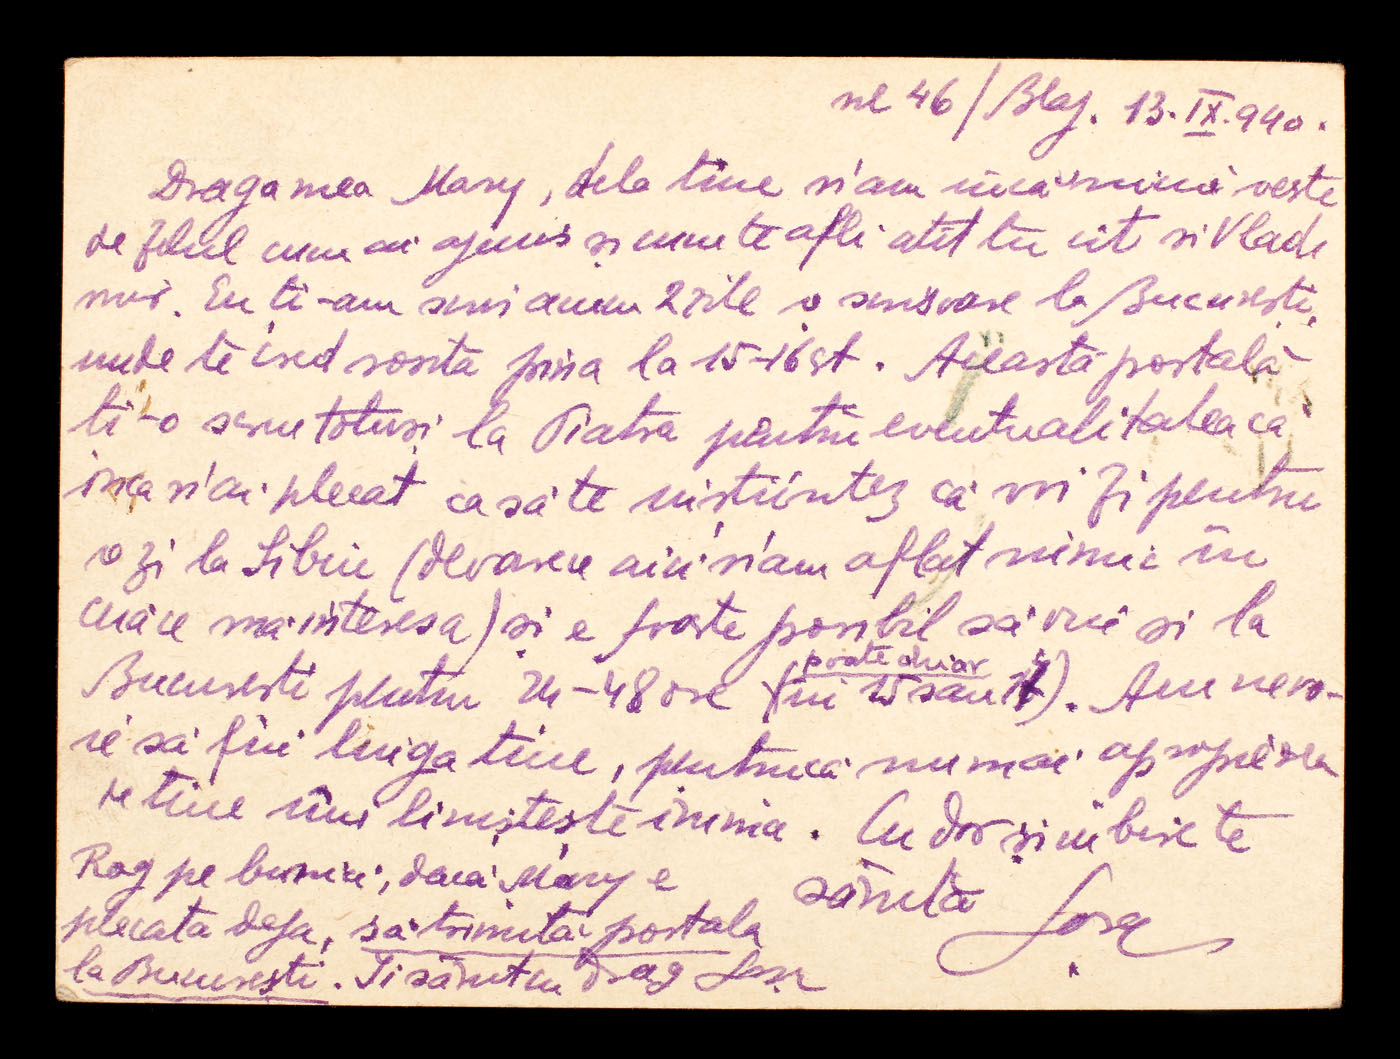 nr 46/Blaj. 13.IX.940.
Draga mea Mary, dela tine n'am încă nicio veste
de felul cum ai ajuns și cum te afli atît tu cît si Vladi
mir. Eu ti-am scris acum 2 zile o scrisoare la Bucuresti,
unde te cred sosita pina la 15-16 st. Aceasta postală
ti-o scriu totusi la Piatra pentru eventualitatea ca
inca n'ai plecat ca sa te instiintez că voi fi pentru
o zi la Sibiu (deoarece aici n'am aflat nimic în
ceiace mă interesa) și e foarte posibil să viu si la
Bucuresti pentru 24-48 ore (in 15 sau 17). Am nevo-
poate chiar
ie să fiu linga tine, pentrucă numai apropierea
de tine îmi linișteste inima. Cu dor și iubire te
sărută
Rog pe bunici, dacă Mary e
plecata deja, să trimită postala
la București. Ti sărut cu drag